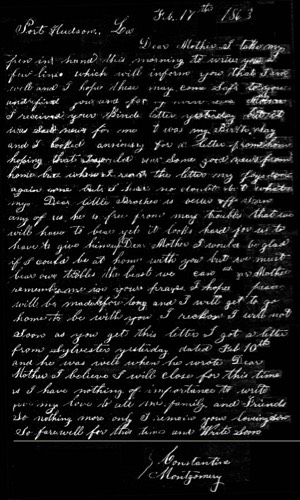 Feb. 17th 1863
Port Hudson, La
Dear Mother I take my
pen in hand this morning to write you a
few lines which will inform you that I am
well and I hope these may come safe to you
and find you and
I received your kind letter yesterday but it
was sad news for me it was my Birth day
and I looked anxiously for a letter from home
hoping that I would hear some good news from
home but when I read the letter my
again but I have no doubt but
my Dear little Brother is better off than
any of us he is free from many troubles that we
will have to bear yet it looks hard for us to
have to give him up Dear Mother I would be glad
if I could be at home with you but we must
bear our trobles the best we can Mother
remember me in your prayers I hope peace
will be made before long and I will get to go
home to be with you I reckon I will not
soon as you get this letter I got a letter
from Sylvester yesterday dated Feb 10th
and he was well when he wrote Dear
Mother I believe I will close for this time
as I have nothing of importance to write
my love to all the family and Friends
So nothing more only I remain your loving son
So farewell for this time and Write Soon
Constantine
Montgomery